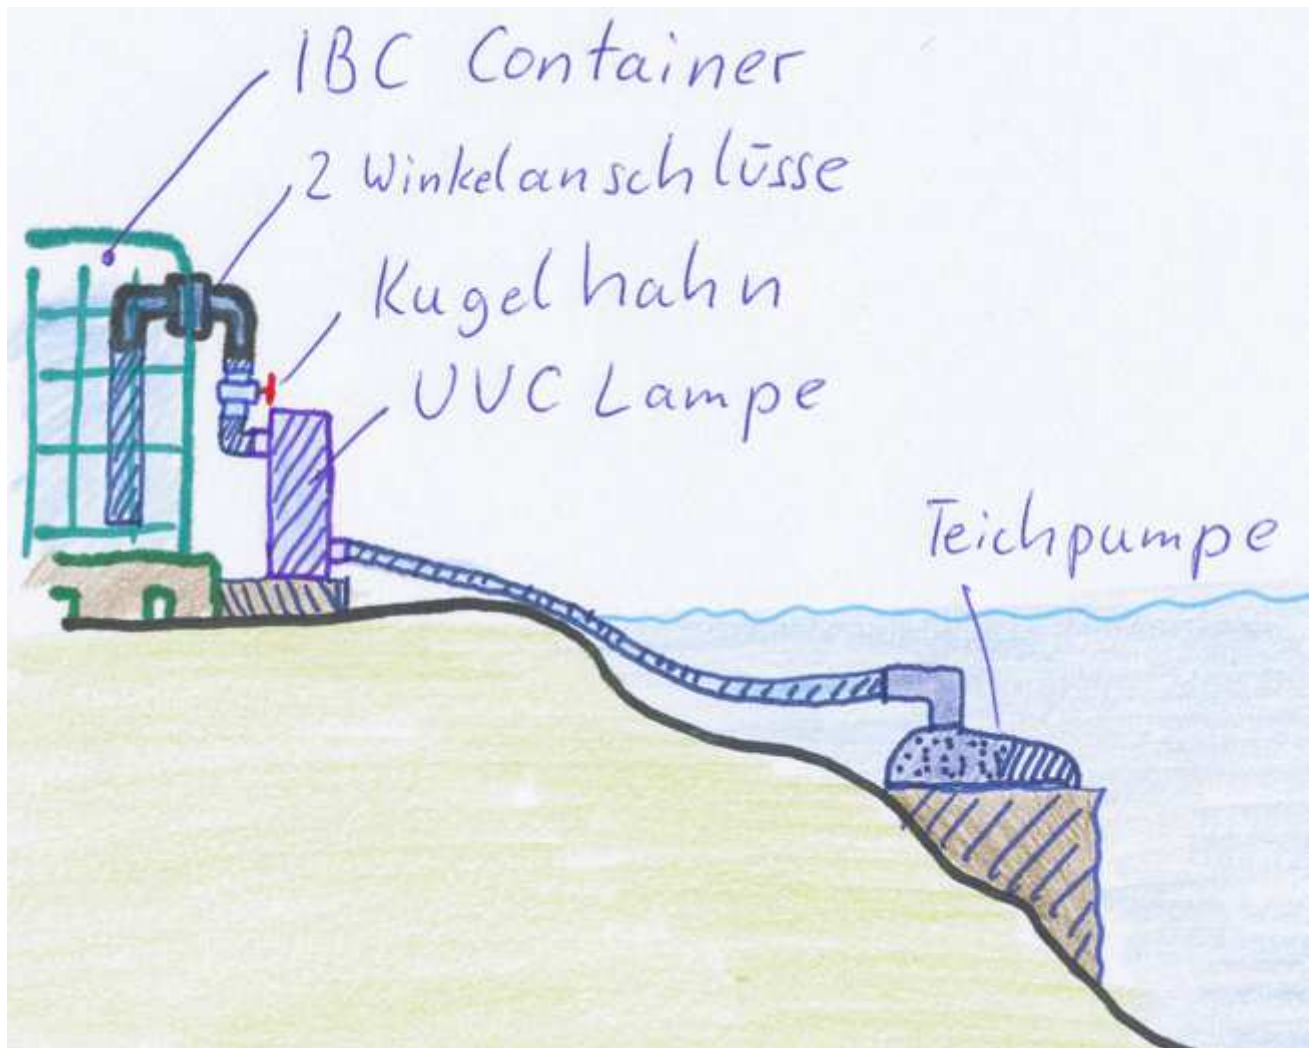 IBC Container
2 Winkelanschlüsse
Kugelhahn
UVC Lampe
Teichpumpe